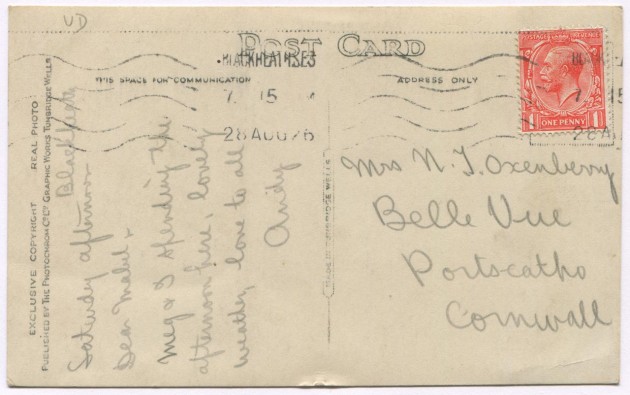 UD
POST CARD
BLACKHEATH S.E.3
THIS SPACE FOR COMMUNICATION
ADDRESS ONLY
7. 15
28 AUG 26
POSTAGE REVENUE
ONE PENNY
1 1
7. 15
28 AU
EXCLUSIVE COPYRIGHT REAL PHOTO
PUBLISHED BY THE PHOTOCHROM CO LTD GRAPHIC WORKS TUNBRIDGE WELLS
MADE IN TUNBRIDGE WELLS
Blackheath
Saturday afternoon
Dear Mabel,
Meg & I spending the
afternoon here, lovely
weather, love to all
Andy
Mrs N. J. Oxenberry
Belle Vue
Portscatho
Cornwall